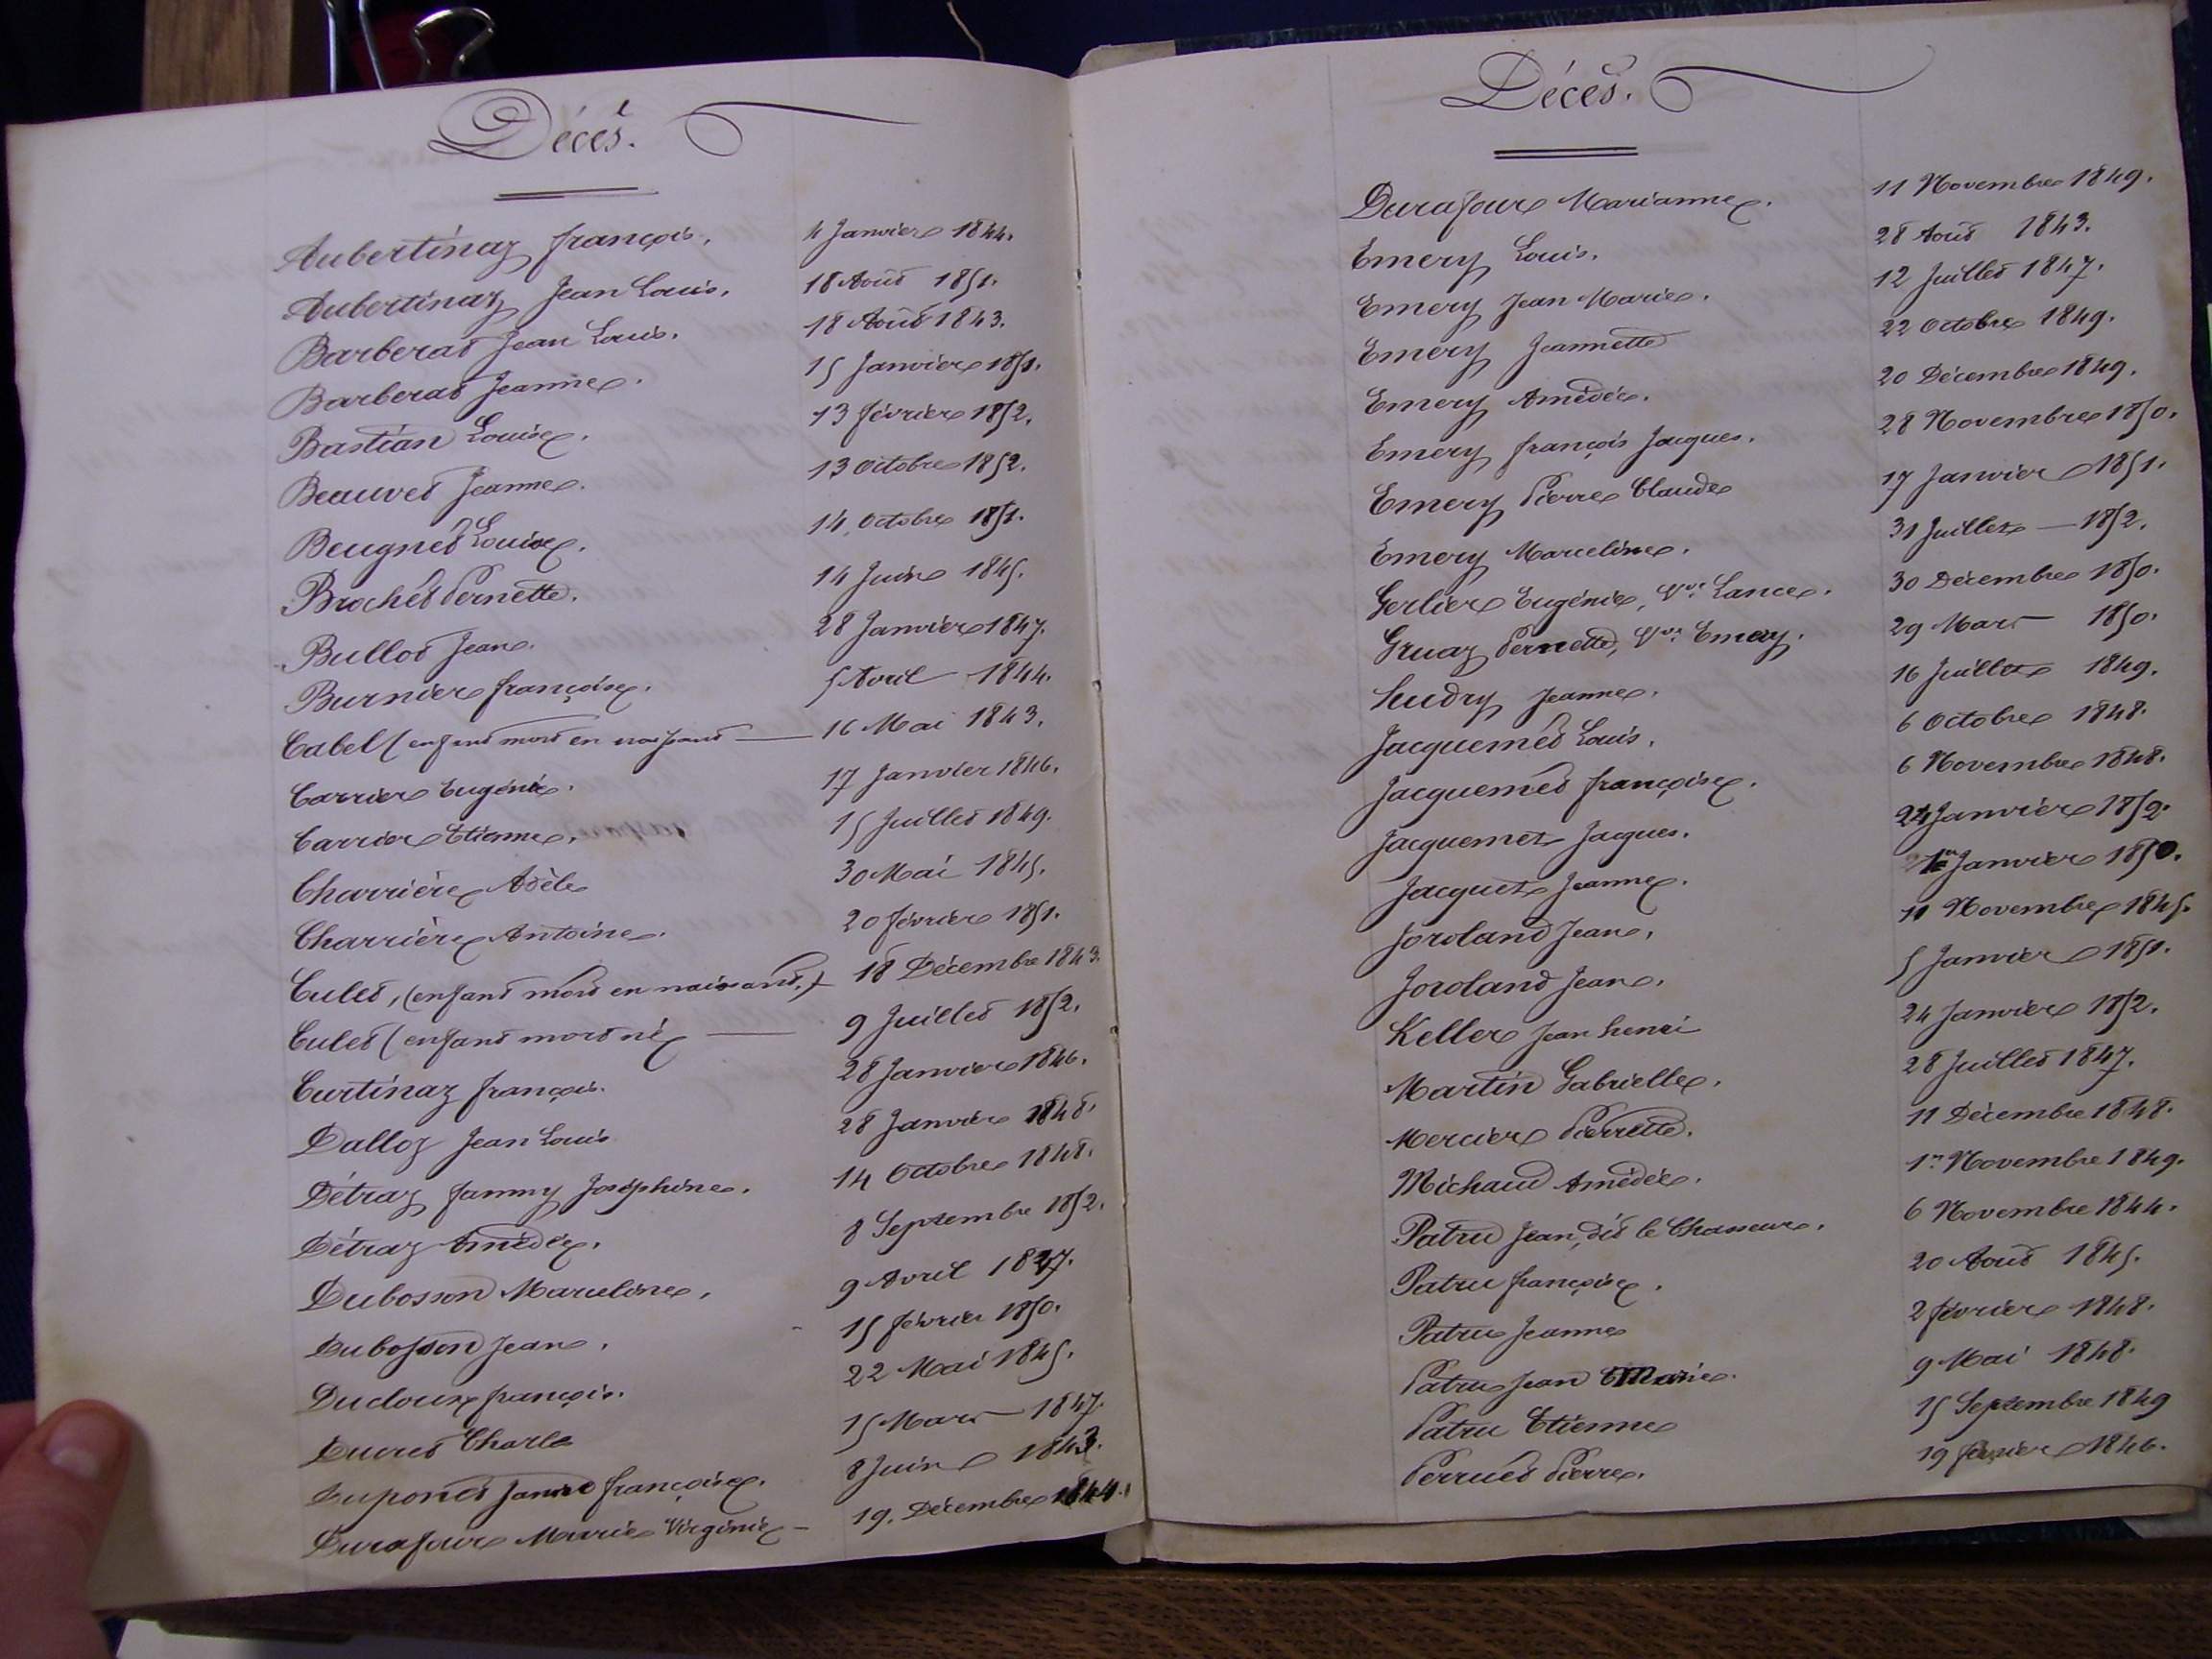 Décès.
Aubertinaz françois. 4 Janvier 1844.
Aubertinaz Jean Louis. 18 Août 1851.
Barberat Jean Louis. 18 Août 1843.
Barberat Jeanne. 15 Janvier 1851.
Bastian Louise. 13 février 1852.
Beauvet Jeanne. 13 Octobre 1852.
Beugnet Louise. 14 Octobre 1851.
Brochet Pernette. 14 Juin 1845.
Bullot Jean. 28 Janvier 1847.
Burnier françoise. 5 Avril 1844.
Cabel (enfant mort en naissant — 16 Mai 1843.
Carrier Eugénie. 17 Janvier 1846.
Carrier Etienne. 15 Juillet 1849.
Charrière Adèle 30 Mai 1845.
Charrière Antoine. 20 février 1851.
Culet, (enfant mort en naissant.) 18 Décembre 1843.
Culet (enfant mort né — 9 Juillet 1852.
Curtinaz françois. 28 Janvier 1846.
Dalloz Jean Louis 28 Janvier 1848.
Détraz fanny Joséphine. 14 Octobre 1848.
Détraz Amédée. 8 Septembre 1852.
Dubosson Marceline. 9 Avril 1847.
Dubosson Jean. 15 février 1850.
Ducloux françois. 22 Mai 1845.
Ducret Charle 15 Mars — 1847.
Dupont Jeanne françoise. 8 Juin 1843.
Durafour Marie Virginie — 19. Décembre 1844.
Décès.
Durafour Marianne. 11 Novembre 1849.
Emery Louis. 28 Août 1843.
Emery Jean Marie. 12 Juillet 1847.
Emery Jeannette 22 Octobre 1849.
Emery Amédée. 20 Décembre 1849.
Emery françois Jacques. 28 Novembre 1850.
Emery Pierre Claude 17 Janvier 1851.
Emery Marceline. 31 Juillet — 1852.
Gerlier Eugénie, Vve. Lance. 30 Décembre 1850.
Gruaz Pernette, Vve. Emery. 29 Mars 1850.
Hudry Jeanne. 16 Juillet 1849.
Jacquemet Louis. 6 Octobre 1848.
Jacquemet françoise. 6 Novembre 1848.
Jacquemet Jacques. 24 Janvier 1852.
Jacquet Jeanne. 1er Janvier 1850.
Joroland Jean. 11 Novembre 1845.
Joroland Jean. 5 Janvier 1851.
Keller Jean henri 24 Janvier 1852.
Martin Gabrielle. 28 Juillet 1847.
Mercier Pierrette. 11 Décembre 1848.
Michaud Amédée. 1er Novembre 1849.
Patru Jean, dit le Chasseur. 6 Novembre 1844.
Patru françoise. 20 Août 1845.
Patru Jeanne 2 février 1848.
Patru Jean Marie. 9 Mai 1848.
Patru Etienne 15 Septembre 1849
Perruet Pierre. 19 février 1846.